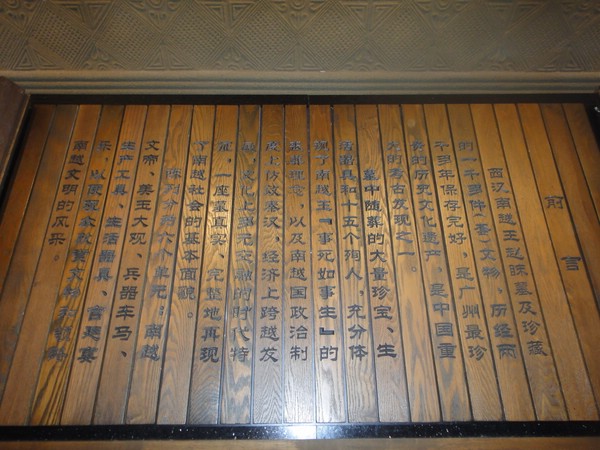 前言
西汉南越王赵眜墓及珍藏
的一千多件(套)文物、历经两
千多年保存完好,是广州最珍
贵的历史文化遗产,是中国重
大的考古发现之一。
墓中随葬的大量珍宝、生
活器具和十五个殉人,充分体
现了南越王『事死如事生』的
丧葬理念,以及南越国政治制
度上仿效秦汉,经济上跨越发
展,文化上多元交融的时代特
征,一座墓真实、完整地再现
了南越社会的基本面貌。
陈列分为六个单元:南越
文帝、美玉大观、兵器车马、
生产工具、生活器具、宫廷宴
乐,以便观众欣赏文物和领略
南越文明的风采。